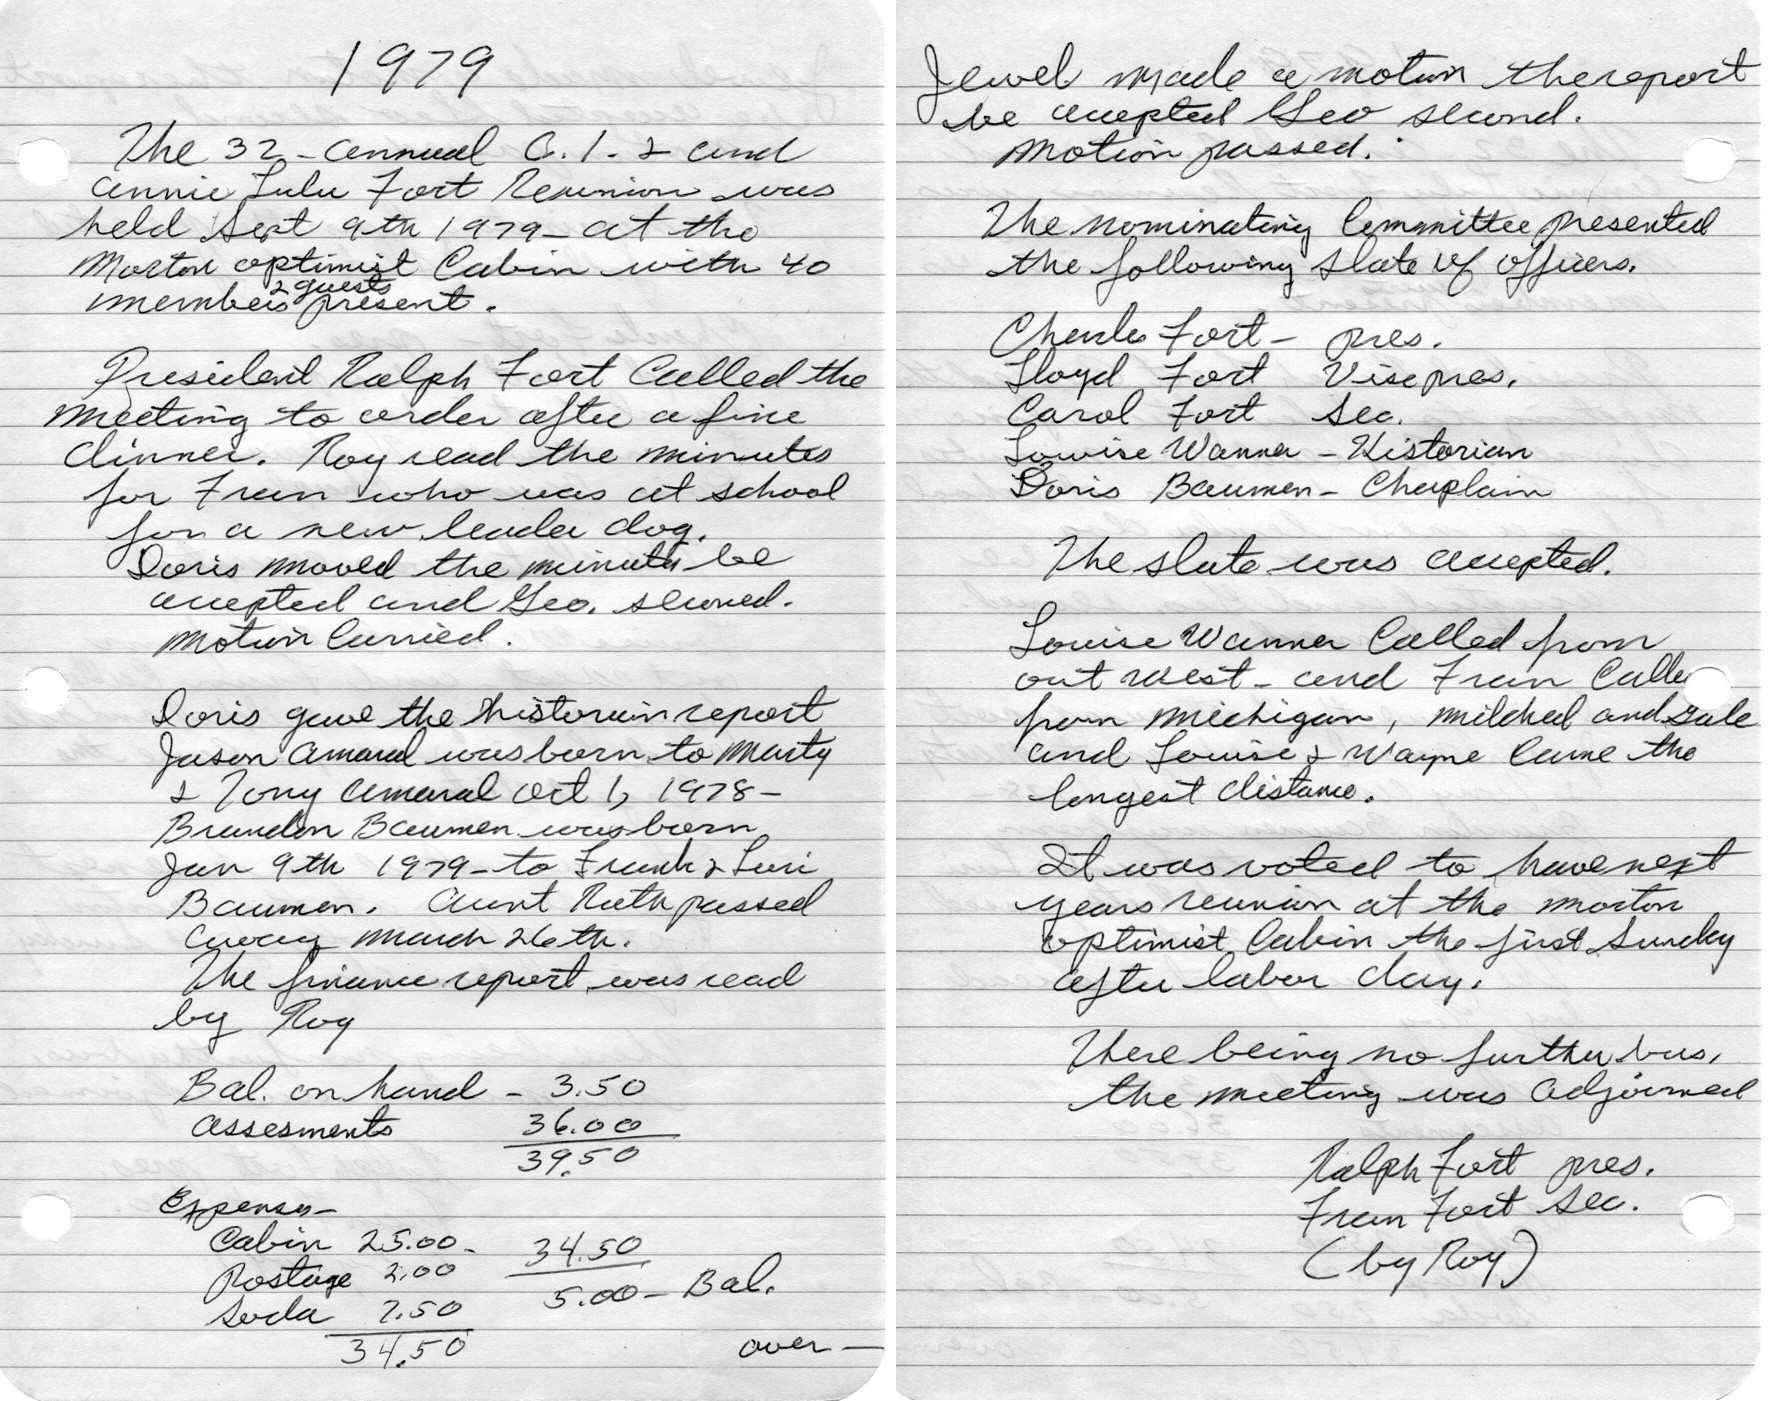 1979
The 32 - annual C. I. & and
Annie Lulu Fort Reunion was
held Sept 9th 1979 - at the
Morton optimist Cabin with 40
2 guests
members present.
President Ralph Fort Called the
meeting to order after a fine
dinner. Roy read the minutes
for Fran who was at school
for a new leader dog.
Doris moved the minutes be
accepted and Geo. second.
motion Carried.
Doris gave the historian report
Jason Amaral was born to Marty
& Tony Amaral Oct 1, 1978 -
Brandon Bauman was born
Jan 9th 1979 - to Frank & Lori
Bauman. Aunt Ruth passed
away March 26th.
The finance report was read
by Roy
Bal. on hand - 3.50
assesments 36.00
39.50
Expenses -
Cabin 25.00 - 34.50
Postage 2.00
5.00 - Bal.
Soda 7.50
34.50
over -
Jewel made a motion the report
be accepted Geo second.
Motion passed.
The nominating Committee presented
the following slate of officers.
Charles Fort - pres.
Lloyd Fort Vise pres.
Carol Fort Sec.
Louise Wanner - Historian
Doris Bauman - Chaplain
The slate was accepted.
Louise Wanner Called from
out west - and Fran Called
from Michigan, mildred and Gale
and Louise & Wayne Came the
longest distance.
It was voted to have next
years reunion at the morton
optimist Cabin the first Sunday
after labor day.
There being no further bus,
the meeting was adjourned
Ralph Fort pres.
Fran Fort Sec.
(by Roy)